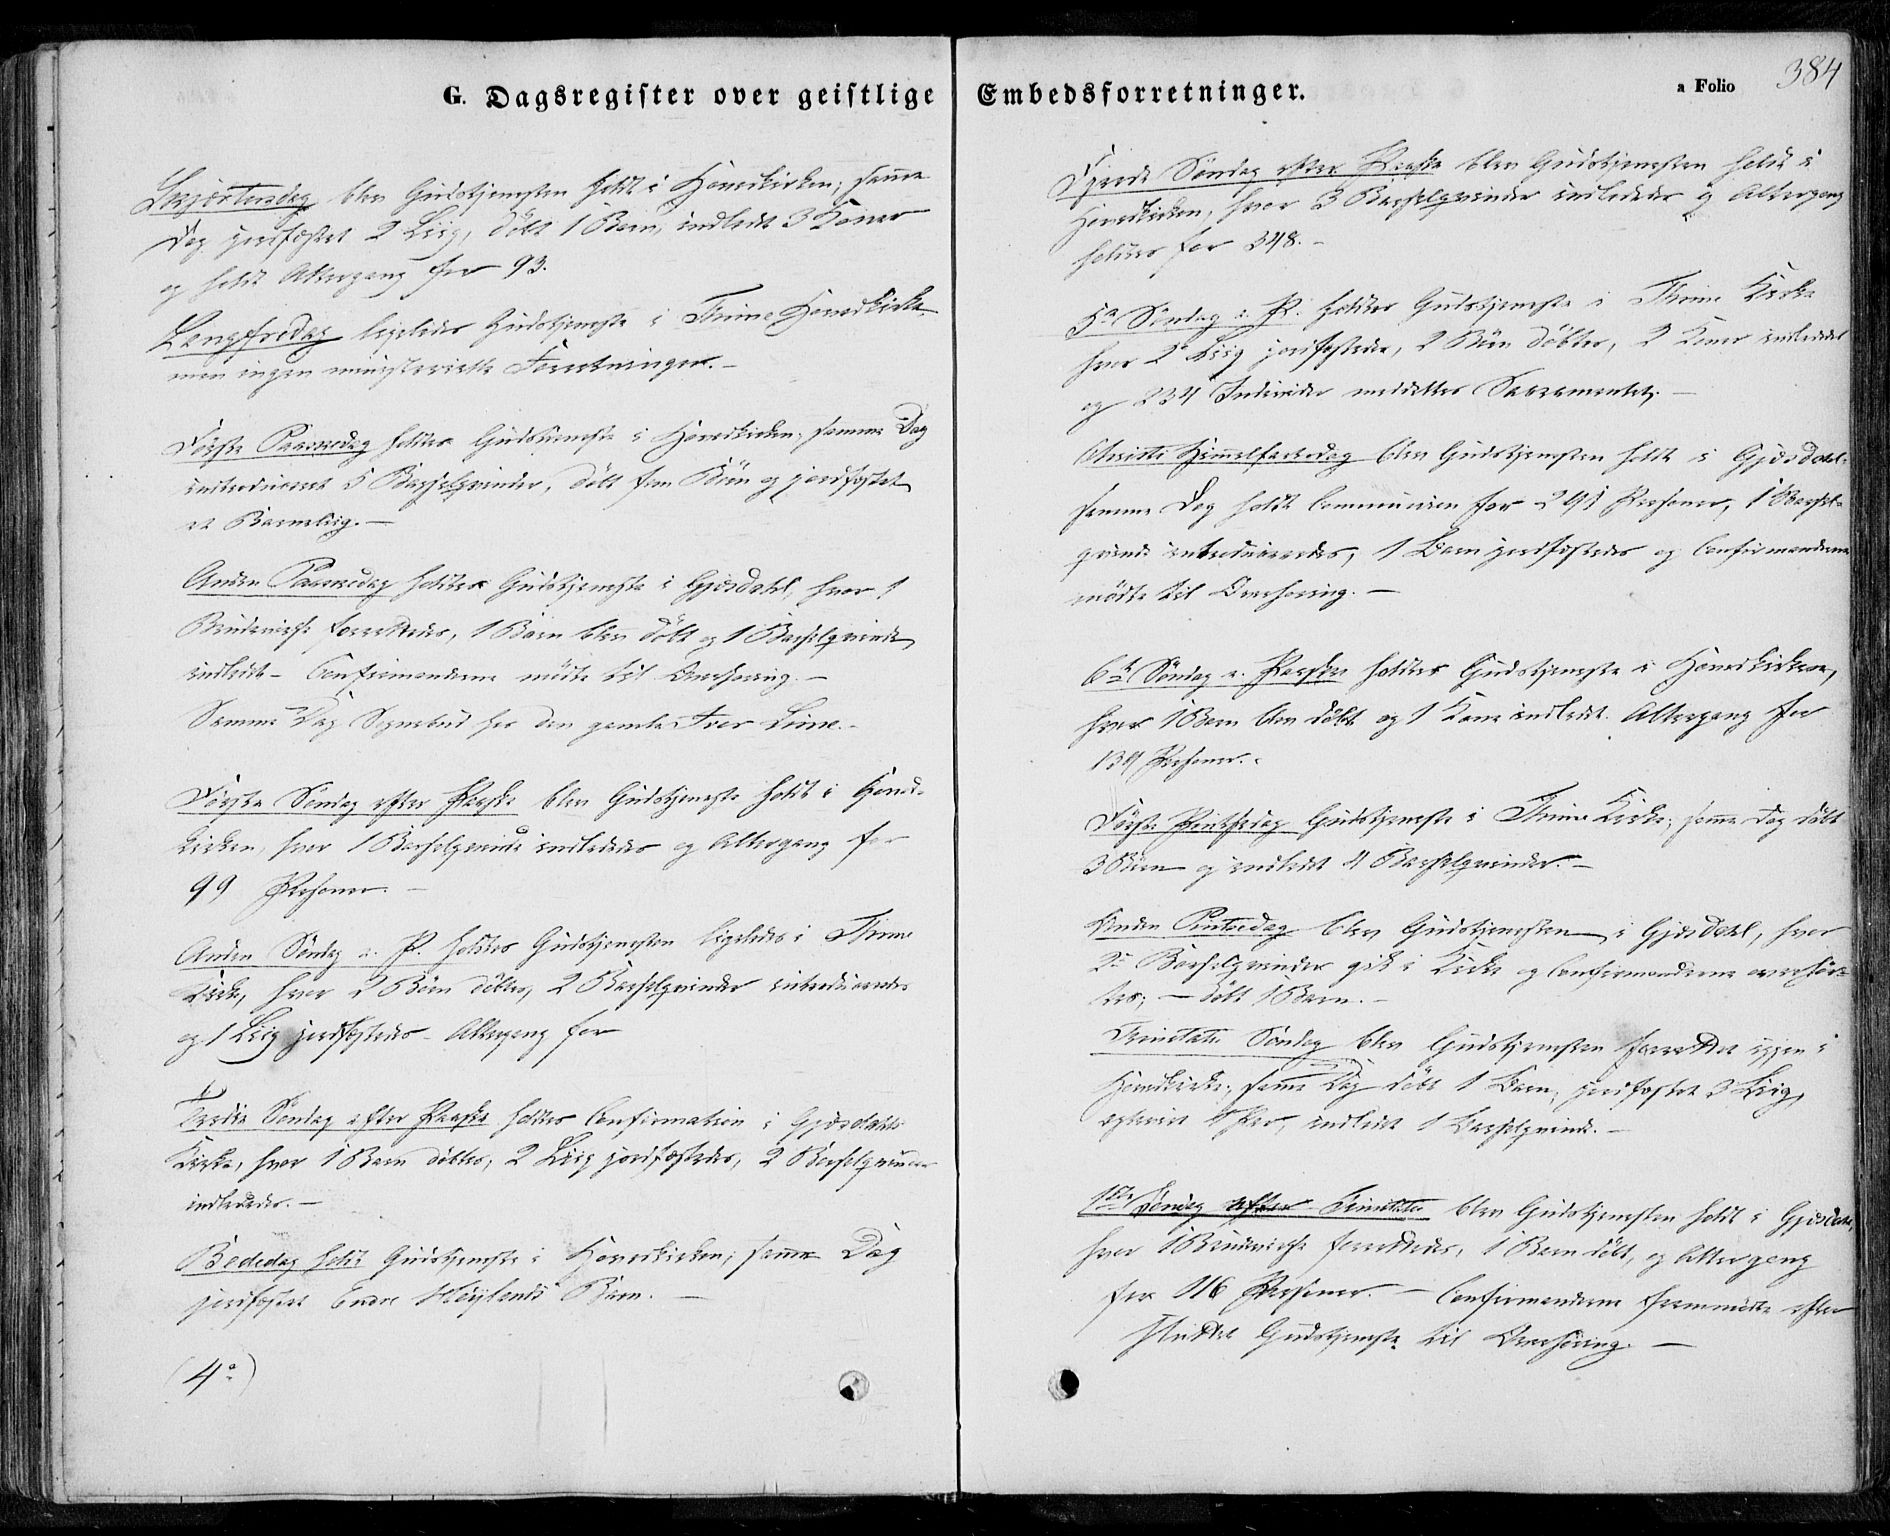 G. Dagsregister over geistlige
Skjærtorsdag blev Gudstjenesten holdt i Hovedkirken; samme
Dag jordfæstet 2 Liig, døbt 1 Barn, indledt 3 Koner
og holdt Altergang for 93.
Langfredag ligeledes Gudstjeneste i Thime Hovedkirke
men ingen ministerielle Forretninger.—
Første Paaskedag holdtes Gudstjeneste i Hovedkirken; samme Dag
introduceret 5 Barselqvinder, døbt fem Børn og jordfæstet
et Barnelig.—
Anden Paaskedag holdtes Gudstjeneste i Gjesdahl, hvor 1
Brudevielse forrettedes, 1 Barn blev døbt og 1 Barselqvinde
indledt - Confirmanderne mødte til Overhøring.—
Samme Dag Sognebud hos den gamle Iver Lime.-
Første Søndag efter Paaske blev Gudstjeneste holdt i Hoved-
kirken, hvor 1 Barselqvinde indlededes og Altergang for
99 Personer.—
Anden Søndag e. P. holdtes Gudstjenesten ligeledes i Thime
Kirke, hvor 2 Børn døbtes, 2 Barselqvinder introduceredes
og 1 Liig jordfæstedes - Altergang for
Tredie Søndag efter Paaske holdtes Confirmation i Gjesdahls
Kirke, hvor 1 Barn døbtes, 2 Liig jordfæstedes, 2 Barselqvinder
indlededes.—
Bededag holdt Gudstjeneste i Hovedkirken; samme Dag
jordfæstet Høylands Barn.—
(4a)
Embedsforretninger.
a Folio 384
Fjerde Søndag efter Paaske blev Gudstjenesten holdt i
Hovedkirken, hvor 3 Barselqvinder indlededes og Altergang
holdtes for 348.-
5te Søndag e. P. holdtes Gudstjeneste i Thime Kirke
hvor 2 Liig jordfæstedes, 2 Børn døbtes, 2 Koner indledet
og 234 Individer meddeltes Sacramentet.—
Christi Himmelfartsdag blev Gudstjenesten holdt i Gjesdahl;
samme Dag holdt Communion for 291 Personer, 1 Barsel-
qvinde introduceredes, 1 Barn jordfæstedes og Confirmanderne
mødte til Overhøring.—
6te Søndag e. Paaske holdtes Gudstjeneste i Hovedkirken,
hvor 1 Barn blev døbt og 1 Kone indledt. Altergang for
134 Personer.-
Første Pintsedag Gudstjeneste i Thime Kirke; samme Dag døbt
3 Børn og indledt 4 Barselqvinder.—
Anden Pintsedag blev Gudstjenesten i Gjesdahl, hvor
2 Barselqvinder gik i Kirke og Confirmanderne overhør-
tes; — døbt 1 Barn.-
Trinitatis Søndag blev Gudstjenesten forrettet igjen i
Hovedkirken; samme Dag døbt 1 Barn, jordfæstet 3 Liig,
Par, indledt 1 Barselqvinde.—
1ste Søndag efter Trinitatis blev Gudstjenesten holdt i Gjesdahl,
hvor 1 Brudevielse forrettedes, 1 Barn døbt, og Altergang
for 116 Personer.— Confirmanderne fremmødte efter
sluttet Gudstjeneste til Overhøring.—